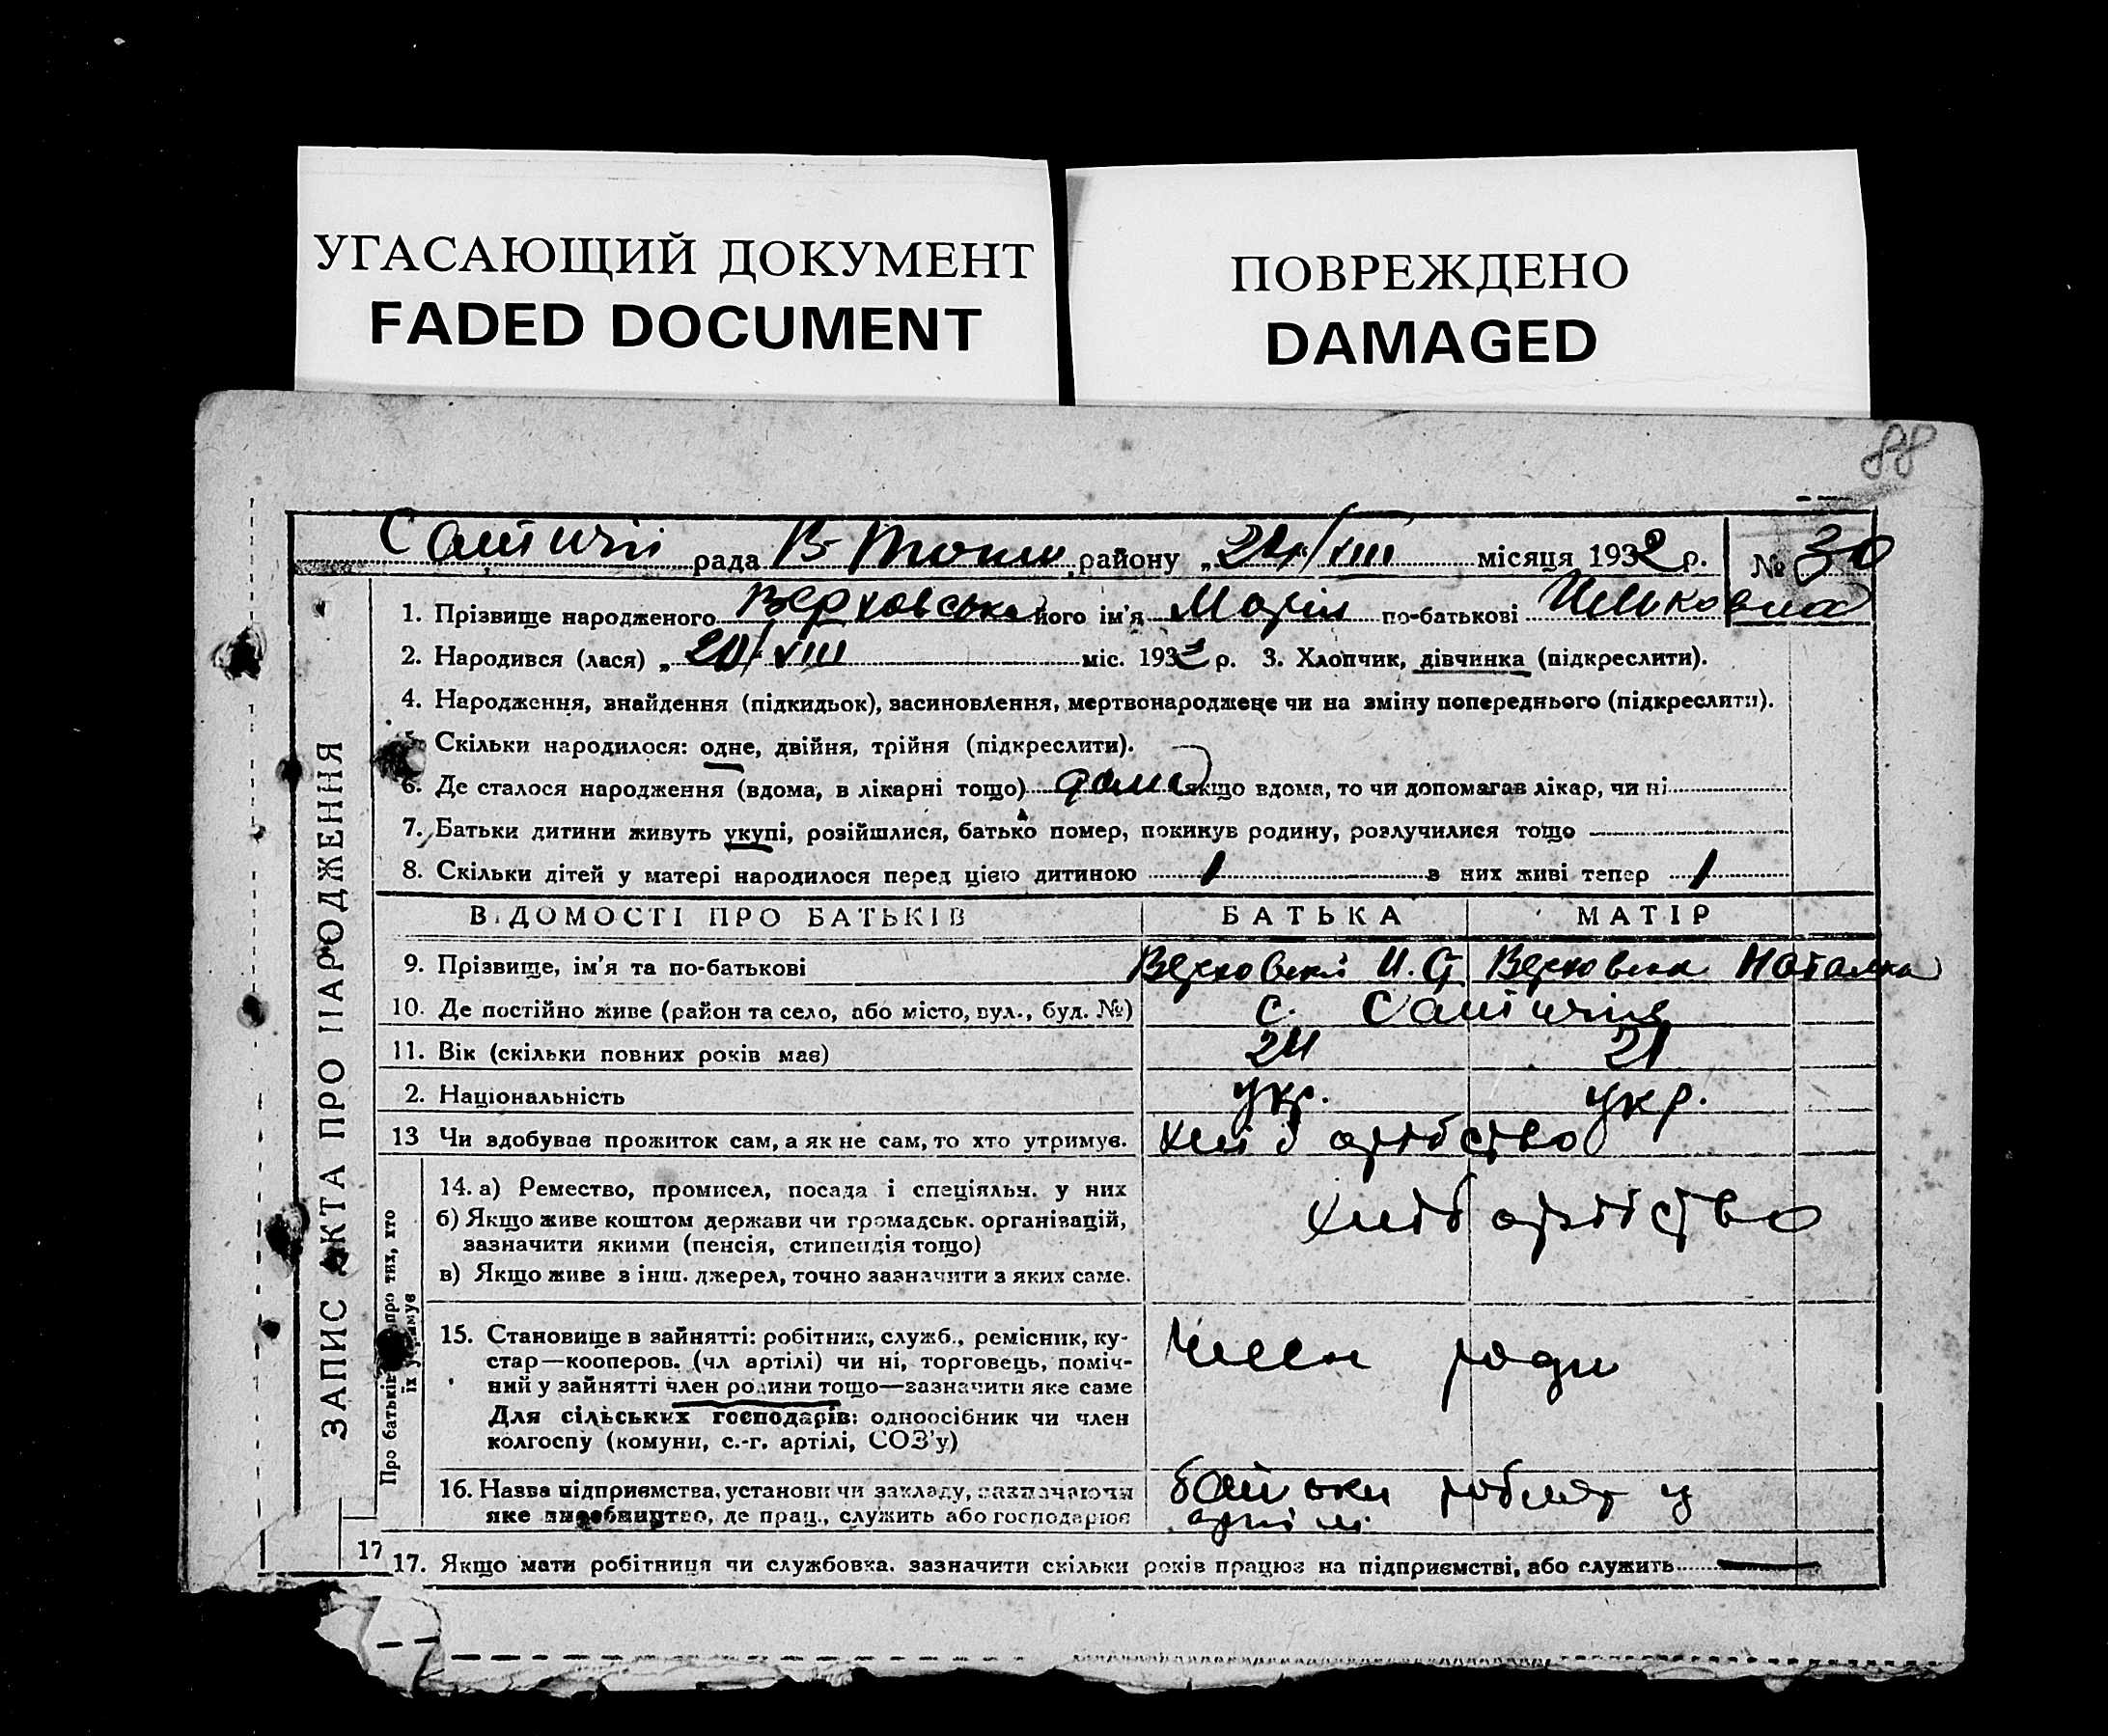 УГАСАЮЩИЙ ДОКУМЕНТ
FADED DOCUMENT
ПОВРЕЖДЕНО
DAMAGED
88
рада В- району „24/VIII місяця 1932 р. № 30
1. Прізвище народженого Верховська його ім'я Марія по-батькові
2. Народився (лася) „20/VIII міс. 1932 р. 3. Хлопчик, дівчинка (підкреслити).
4. Народження, знайдення (підкидьок), засиновлення, мертвонароджене чи на зміну попереднього (підкреслити).
5. Скільки народилося: одне, двійня, трійня (підкреслити).
6. Де сталося народження (вдома, в лікарні тощо) дома якщо вдома, то чи допомагав лікар, чи ні
7. Батьки дитини живуть укупі, розійшлися, батько помер, покинув родину, розлучилися тощо
8. Скільки дітей у матері народилося перед цією дитиною 1 з них живі тепер 1
ВІДОМОСТІ ПРО БАТЬКІВ БАТЬКА МАТІР
9. Прізвище, ім'я та по-батькові Верховский И. Верховска Наталка
10. Де постійно живе (район та село, або місто, вул., буд. №) с.
11. Вік (скільки повних років має) 24 21
2. Національність укр. укр.
13 Чи здобуває прожиток сам, а як не сам, то хто утримує. хліборобство
14. а) Ремество, промисел, посада і спеціяльн. у них
б) Якщо живе коштом держави чи громадськ. організацій,
зазначити якими (пенсія, стипендія тощо)
в) Якщо живе з інш. джерел, точно зазначити з яких саме.
хліборобство
15. Становище в зайнятті: робітник, служб., ремісник, ку-
стар—кооперов. (чл артілі) чи ні, торговець, поміч-
ний у зайнятті член родини тощо—зазначити яке саме
Для сільських господарів: одноосібник чи член
колгоспу (комуни, с.-г. артілі, СОЗ'у)
член роди
16. Назва підприємства, установи чи закладу, зазначаючи
яке виробництво, де прац., служить або господарює
батьки роблят у
артілі
17
17. Якщо мати робітниця чи службовка. зазначити скільки років працює на підприємстві, або служить
ЗАПИС АКТА ПРО НАРОДЖЕННЯ
Про батьків про тих, хто
їх утримує